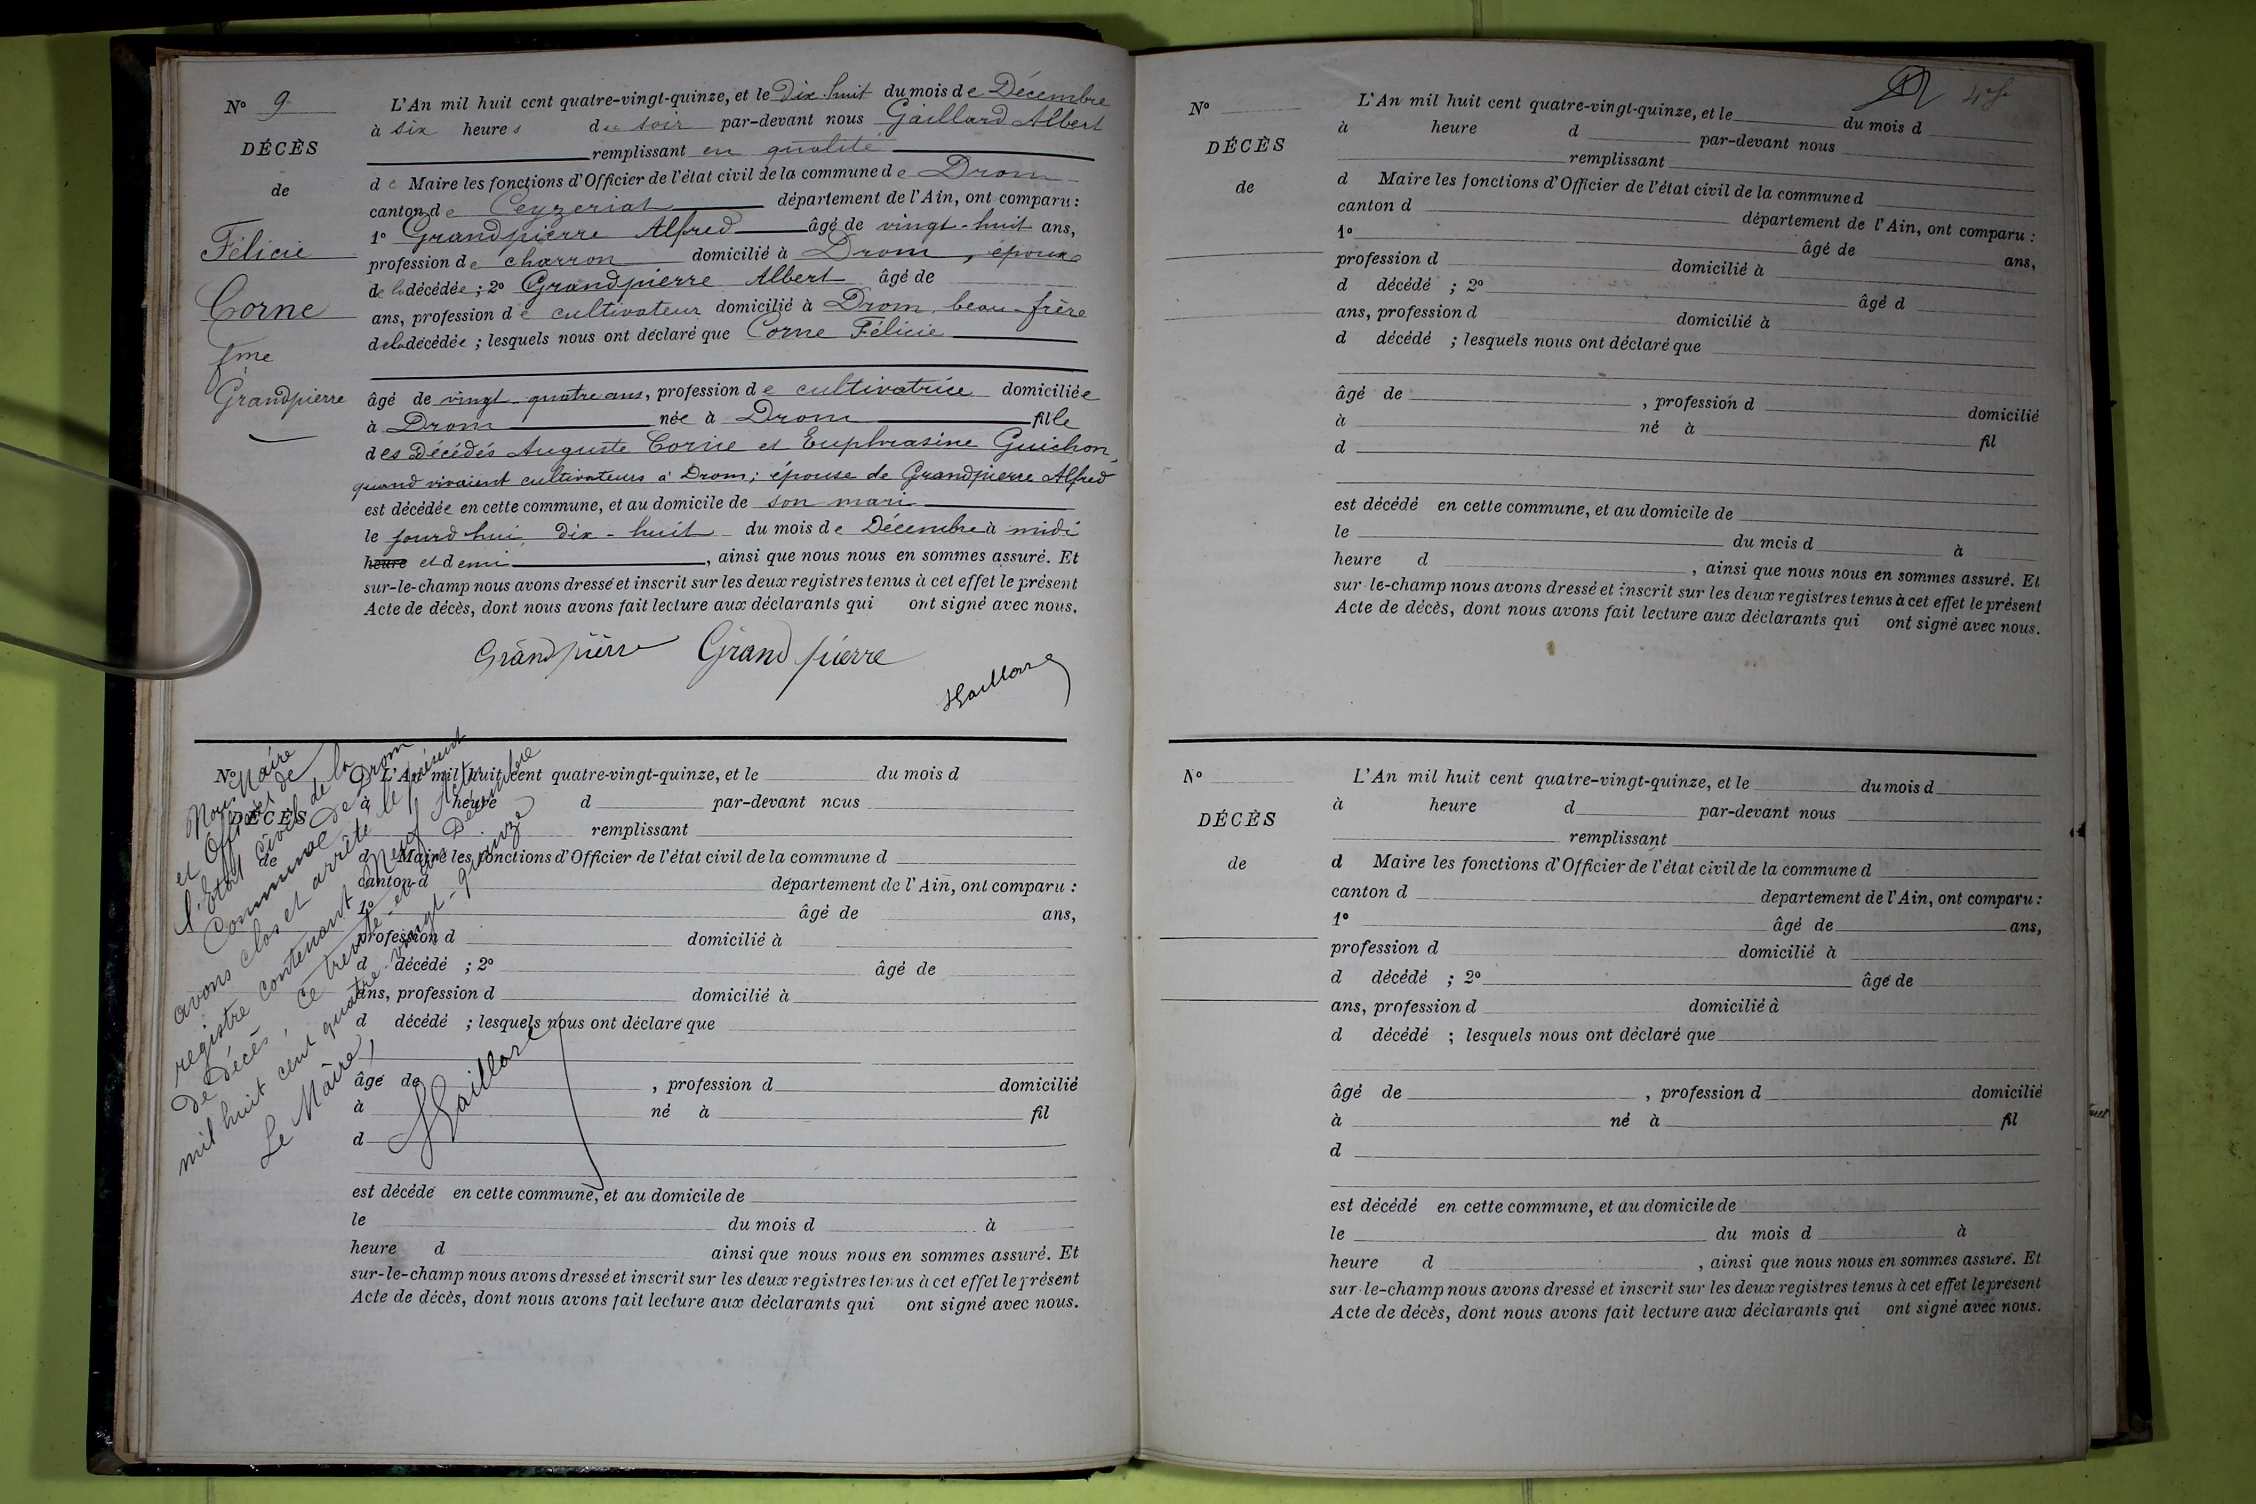 N° 9
DÉCÈS
de
Félicie
Corne
fme
Grandpierre
L'An mil huit cent quatre-vingt-quinze, et le dix-huit du mois de Décembre
à six heures du soir par-devant nous Gaillard Albert
remplissant en qualité
de Maire les fonctions d'Officier de l'état civil de la commune de Drom
canton de Ceyzeriat département de l'Ain, ont comparu :
1° Grandpierre Alfred âgé de vingt-huit ans,
profession de charron domicilié à Drom, époux
de la décédée ; 2° Grandpierre Albert âgé de
ans, profession de cultivateur domicilié à Drom, beau-frère
de la décédée ; lesquels nous ont déclaré que Corne Félicie
âgé de vingt-quatre ans, profession de cultivatrice domiciliée
à Drom née à Drom fille
des Décédés Auguste Corne et Euphrasine Guichon,
quand vivaient cultivateurs à Drom ; épouse de Grandpierre Alfred
est décédée en cette commune, et au domicile de son mari
le jourd'hui dix-huit du mois de Décembre à midi
heure et demi, ainsi que nous nous en sommes assuré. Et
sur-le-champ nous avons dressé et inscrit sur les deux registres tenus à cet effet le présent
Acte de décès, dont nous avons fait lecture aux déclarants qui ont signé avec nous.
Grandpierre Grandpierre
Gaillard
N°
DÉCÈS
de
L'An mil huit cent quatre-vingt-quinze, et le du mois d
à heure d par-devant nous
remplissant
d Maire les fonctions d'Officier de l'état civil de la commune d
canton d département de l'Ain, ont comparu :
1° âgé de ans,
profession d domicilié à
d décédé ; 2° âgé de
ans, profession d domicilié à
d décédé ; lesquels nous ont déclaré que
âgé de , profession d domicilié
à né à fil
d
est décédé en cette commune, et au domicile de
le du mois d à
heure d ainsi que nous nous en sommes assuré. Et
sur-le-champ nous avons dressé et inscrit sur les deux registres tenus à cet effet le présent
Acte de décès, dont nous avons fait lecture aux déclarants qui ont signé avec nous.
Nous Maire
et Officier de
l'Etat civil de la
Commune de Drom
avons clos et arrêté le présent
registre contenant Neuf Actes
de Décès, ce trente-et-un Décembre
mil huit cent quatre-vingt-quinze
Le Maire,
Gaillard
N°
DÉCÈS
de
L'An mil huit cent quatre-vingt-quinze, et le du mois d
à heure d par-devant nous
remplissant
d Maire les fonctions d'Officier de l'état civil de la commune d
canton d département de l'Ain, ont comparu :
1° âgé de ans,
profession d domicilié à
d décédé ; 2° âgé d
ans, profession d domicilié à
d décédé ; lesquels nous ont déclaré que
âgé de , profession d domicilié
à né à fil
d
est décédé en cette commune, et au domicile de
le du mois d à
heure d , ainsi que nous nous en sommes assuré. Et
sur-le-champ nous avons dressé et inscrit sur les deux registres tenus à cet effet le présent
Acte de décès, dont nous avons fait lecture aux déclarants qui ont signé avec nous.
N°
DÉCÈS
de
L'An mil huit cent quatre-vingt-quinze, et le du mois d
à heure d par-devant nous
remplissant
d Maire les fonctions d'Officier de l'état civil de la commune d
canton d departement de l'Ain, ont comparu :
1° âgé de ans,
profession d domicilié à
d décédé ; 2° âgé de
ans, profession d domicilié à
d décédé ; lesquels nous ont déclaré que
âgé de , profession d domicilié
à né à fil
d
est décédé en cette commune, et au domicile de
le du mois d à
heure d , ainsi que nous nous en sommes assuré. Et
sur-le-champ nous avons dressé et inscrit sur les deux registres tenus à cet effet le présent
Acte de décès, dont nous avons fait lecture aux déclarants qui ont signé avec nous.